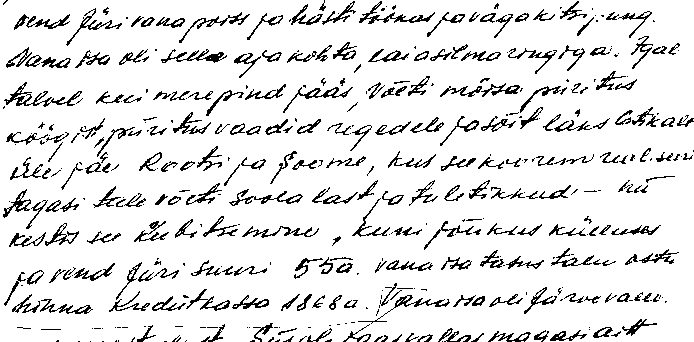 vend Jüri vana poiss ja hästi töökas ja väga kitsi
Vanaisa oli selle aja kohta, laia silmaringiga. Igal
talvel kui merepind jääs, võeti mõisa piiritus
köögist, piiritus vaadid regedele ja sõit läks
üle jäe Rootsi ja Soome, kus see koorem
tagasi teele võeti soola last ja tuletikkud – nii
kestis see kuni jõukus külluses
ja vend Jüri suri 55 a. vanaisa tasus talu ostu
hinna Krediitkassa 1868 a. Vanaisa oli Järve
magasiait